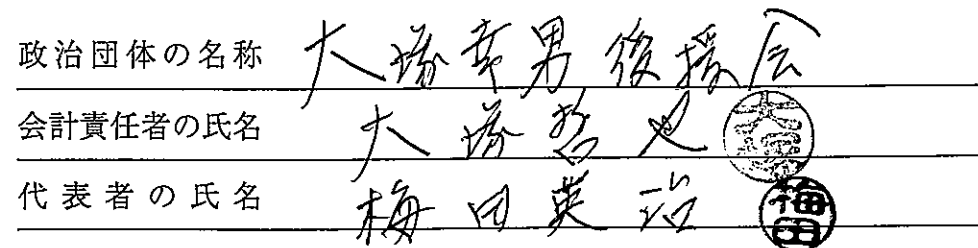 政治団体の名称 大塚幸男後援会
会計責任者の氏名 大塚哲也 大塚
代表者の氏名 梅田英治 梅田